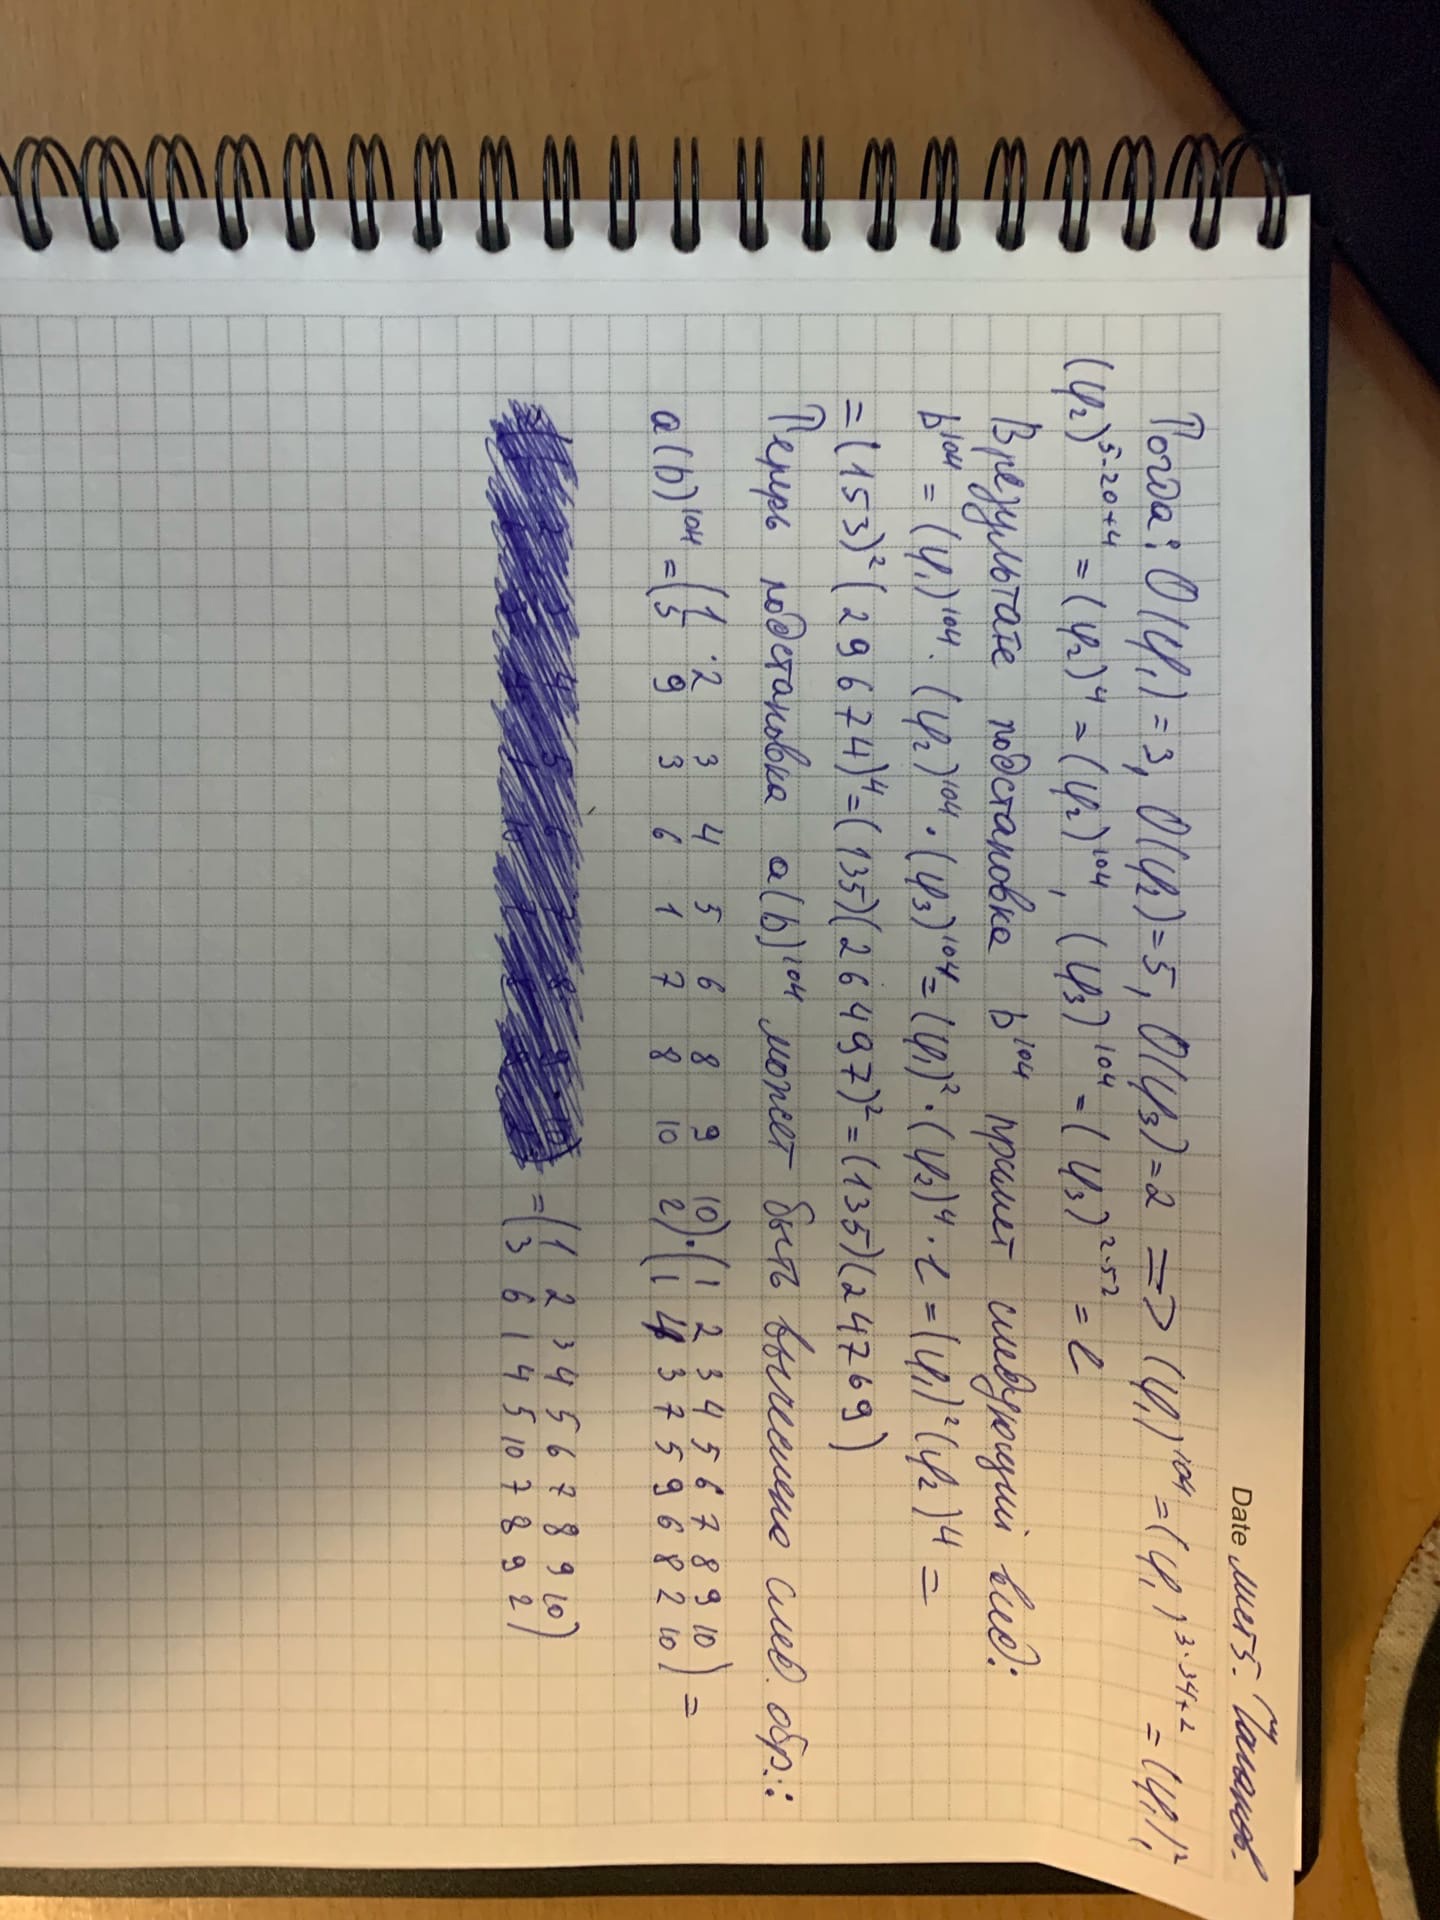 Date лист 5.
Тогда: O(φ₁)=3, O(φ₂)=5, O(φ₃)=2 => (φ₁)¹⁰⁴ = (φ₁)^3·34+2 = (φ₁)²,
(φ₂)^5·20+4 = (φ₂)⁴ = (φ₂)¹⁰⁴, (φ₃)¹⁰⁴ = (φ₃)^2·52 = e
В результате подстановка b¹⁰⁴ примет следующий вид:
b¹⁰⁴ = (φ₁)¹⁰⁴ · (φ₂)¹⁰⁴ · (φ₃)¹⁰⁴ = (φ₁)² · (φ₂)⁴ · e = (φ₁)² (φ₂)⁴ =
= (153)² (29674)⁴ = (135)(26497)² = (135)(24769)
Теперь подстановка a(b)¹⁰⁴ может быть вычислена след. обр.:
a(b)¹⁰⁴ = (1 2 3 4 5 6 8 9 10) · (1 2 3 4 5 6 7 8 9 10) =
(5 9 3 6 1 7 8 10 2) (1 4 3 7 5 9 6 8 2 10)
= (1 2 3 4 5 6 7 8 9 10)
(3 6 1 4 5 10 7 8 9 2)